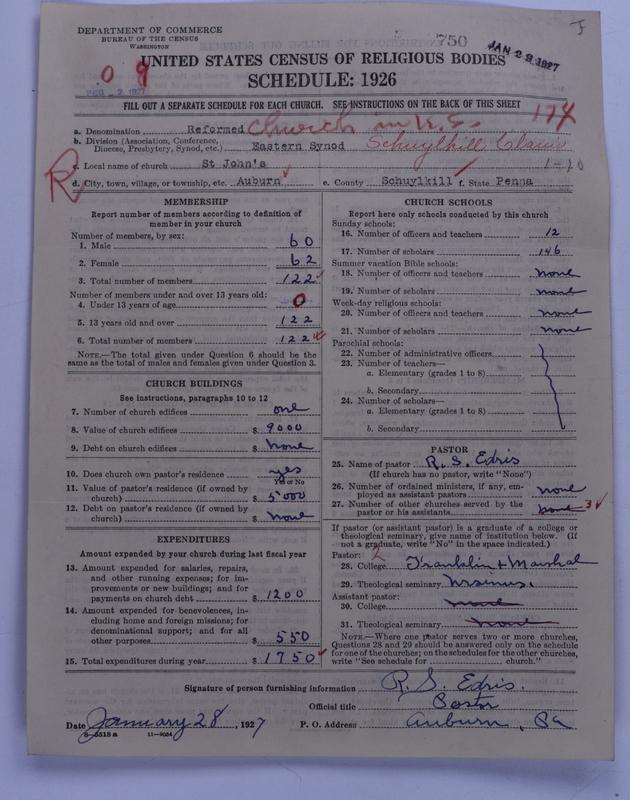 DEPARTMENT OF COMMERCE
BUREAU OF THE CENSUS
WASHINGTON
750
JAN 29 1927
09
FEB 2 1927
UNITED STATES CENSUS OF RELIGIOUS BODIES
SCHEDULE: 1926
FILL OUT A SEPARATE SCHEDULE FOR EACH CHURCH. SEE INSTRUCTIONS ON THE BACK OF THIS SHEET
174
a. Denomination Reformed Church in U.S.
b. Division (Association, Conference, Diocese, Presbytery, Synod, etc.) Eastern Synod Schuylkill Classis
R
c. Local name of church St John's 1-10
d. City, town, village, or township, etc. Auburn e. County Schuylkill f. State Penna
MEMBERSHIP
Report number of members according to definition of
member in your church
Number of members, by sex:
1. Male 60
2. Female 62
3. Total number of members 122
Number of members under and over 13 years old:
4. Under 13 years of age 0
5. 13 years old and over 122
6. Total number of members 122
NOTE.—The total given under Question 6 should be the
same as the total of males and females given under Question 3.
CHURCH BUILDINGS
See instructions, paragraphs 10 to 12
7. Number of church edifices one
8. Value of church edifices $ 9000
9. Debt on church edifices $ none
10. Does church own pastor's residence yes
Yes or No
11. Value of pastor's residence (if owned by
church) $ 5000
12. Debt on pastor's residence (if owned by
church) $ none
EXPENDITURES
Amount expended by your church during last fiscal year
13. Amount expended for salaries, repairs,
and other running expenses; for im-
provements or new buildings; and for
payments on church debt $ 1200
14. Amount expended for benevolences, in-
cluding home and foreign missions; for
denominational support; and for all
other purposes $ 550
15. Total expenditures during year $ 1750
CHURCH SCHOOLS
Report here only schools conducted by this church
Sunday schools:
16. Number of officers and teachers 12
17. Number of scholars 146
Summer vacation Bible schools:
18. Number of officers and teachers none
19. Number of scholars none
Week-day religious schools:
20. Number of officers and teachers none
21. Number of scholars none
Parochial schools:
22. Number of administrative officers
23. Number of teachers—
a. Elementary (grades 1 to 8)
b. Secondary
24. Number of scholars—
a. Elementary (grades 1 to 8)
b. Secondary
PASTOR
25. Name of pastor R. S. Edris
(If church has no pastor, write "None")
26. Number of ordained ministers, if any, em-
ployed as assistant pastors none
27. Number of other churches served by the
pastor or his assistants none 3
If pastor (or assistant pastor) is a graduate of a college or
theological seminary, give name of institution below. (If
not a graduate, write "No" in the space indicated.)
Pastor: 2
28. College Franklin + Marshal
29. Theological seminary Ursinus.
Assistant pastor:
30. College none
31. Theological seminary none
NOTE.—Where one pastor serves two or more churches,
Questions 28 and 29 should be answered only on the schedule
for one of the churches; on the schedules for the other churches,
write "See schedule for church."
Signature of person furnishing information R. S. Edris.
Official title Pastor
Date January 28, 1927 P. O. Address Auburn, Pa
8-5518a 11-9034